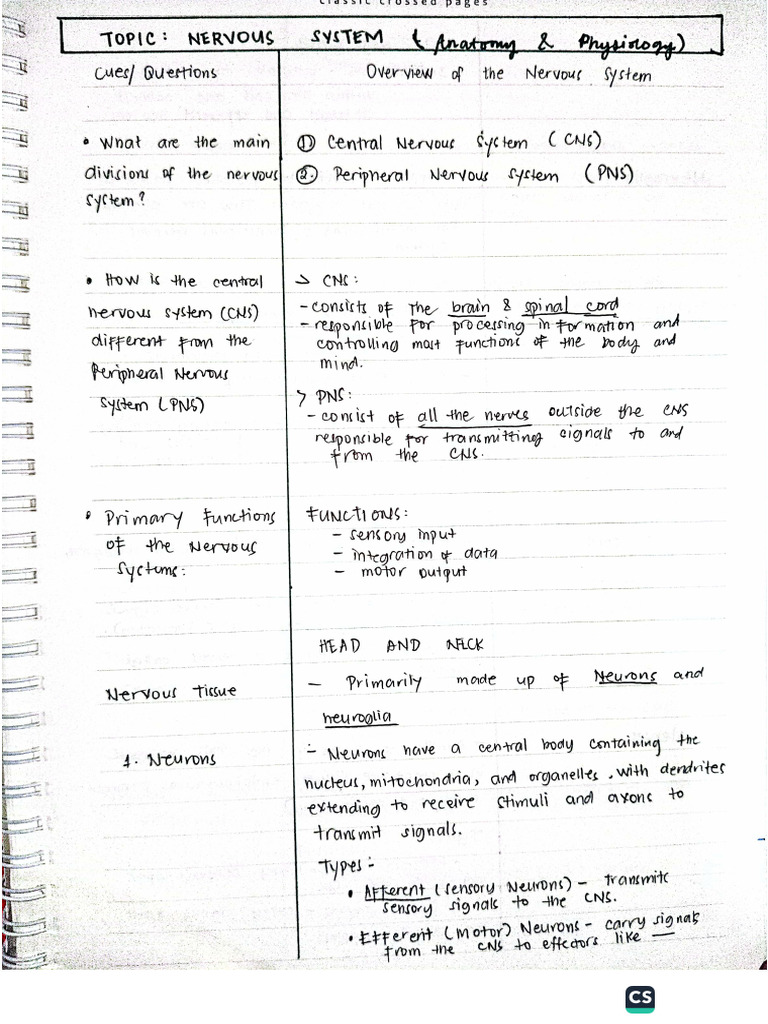 classic crossed pages
TOPIC: NERVOUS SYSTEM (Anatomy & Physiology)
Cues/Questions
Overview of the Nervous System
• What are the main
divisions of the nervous
system?
① Central Nervous System (CNS)
②. Peripheral Nervous System (PNS)
• How is the central
nervous system (CNS)
different from the
Peripheral Nervous
System (PNS)
> CNS:
- consists of the brain & spinal cord
- responsible for processing information and
controlling most functions of the body and
mind.
> PNS:
- consist of all the nerves outside the CNS
responsible for transmitting signals to and
from the CNS.
• Primary Functions
of the Nervous
Systems:
FUNCTIONS:
- sensory input
- integration of data
- motor output
HEAD AND NECK
Nervous tissue
- Primarily made up of Neurons and
neuroglia
1. Neurons
- Neurons have a central body containing the
nucleus, mitochondria, and organelles, with dendrites
extending to receive stimuli and axons to
transmit signals.
Types:
• Afferent (sensory Neurons) - transmits
sensory signals to the CNS.
• Efferent (Motor) Neurons - carry signals
from the CNS to effectors like —
CS